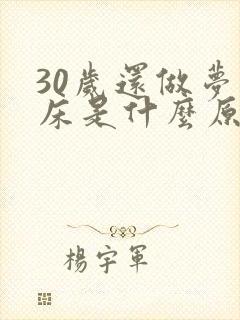 30歲還做夢
床是什麼原
楊宇軍